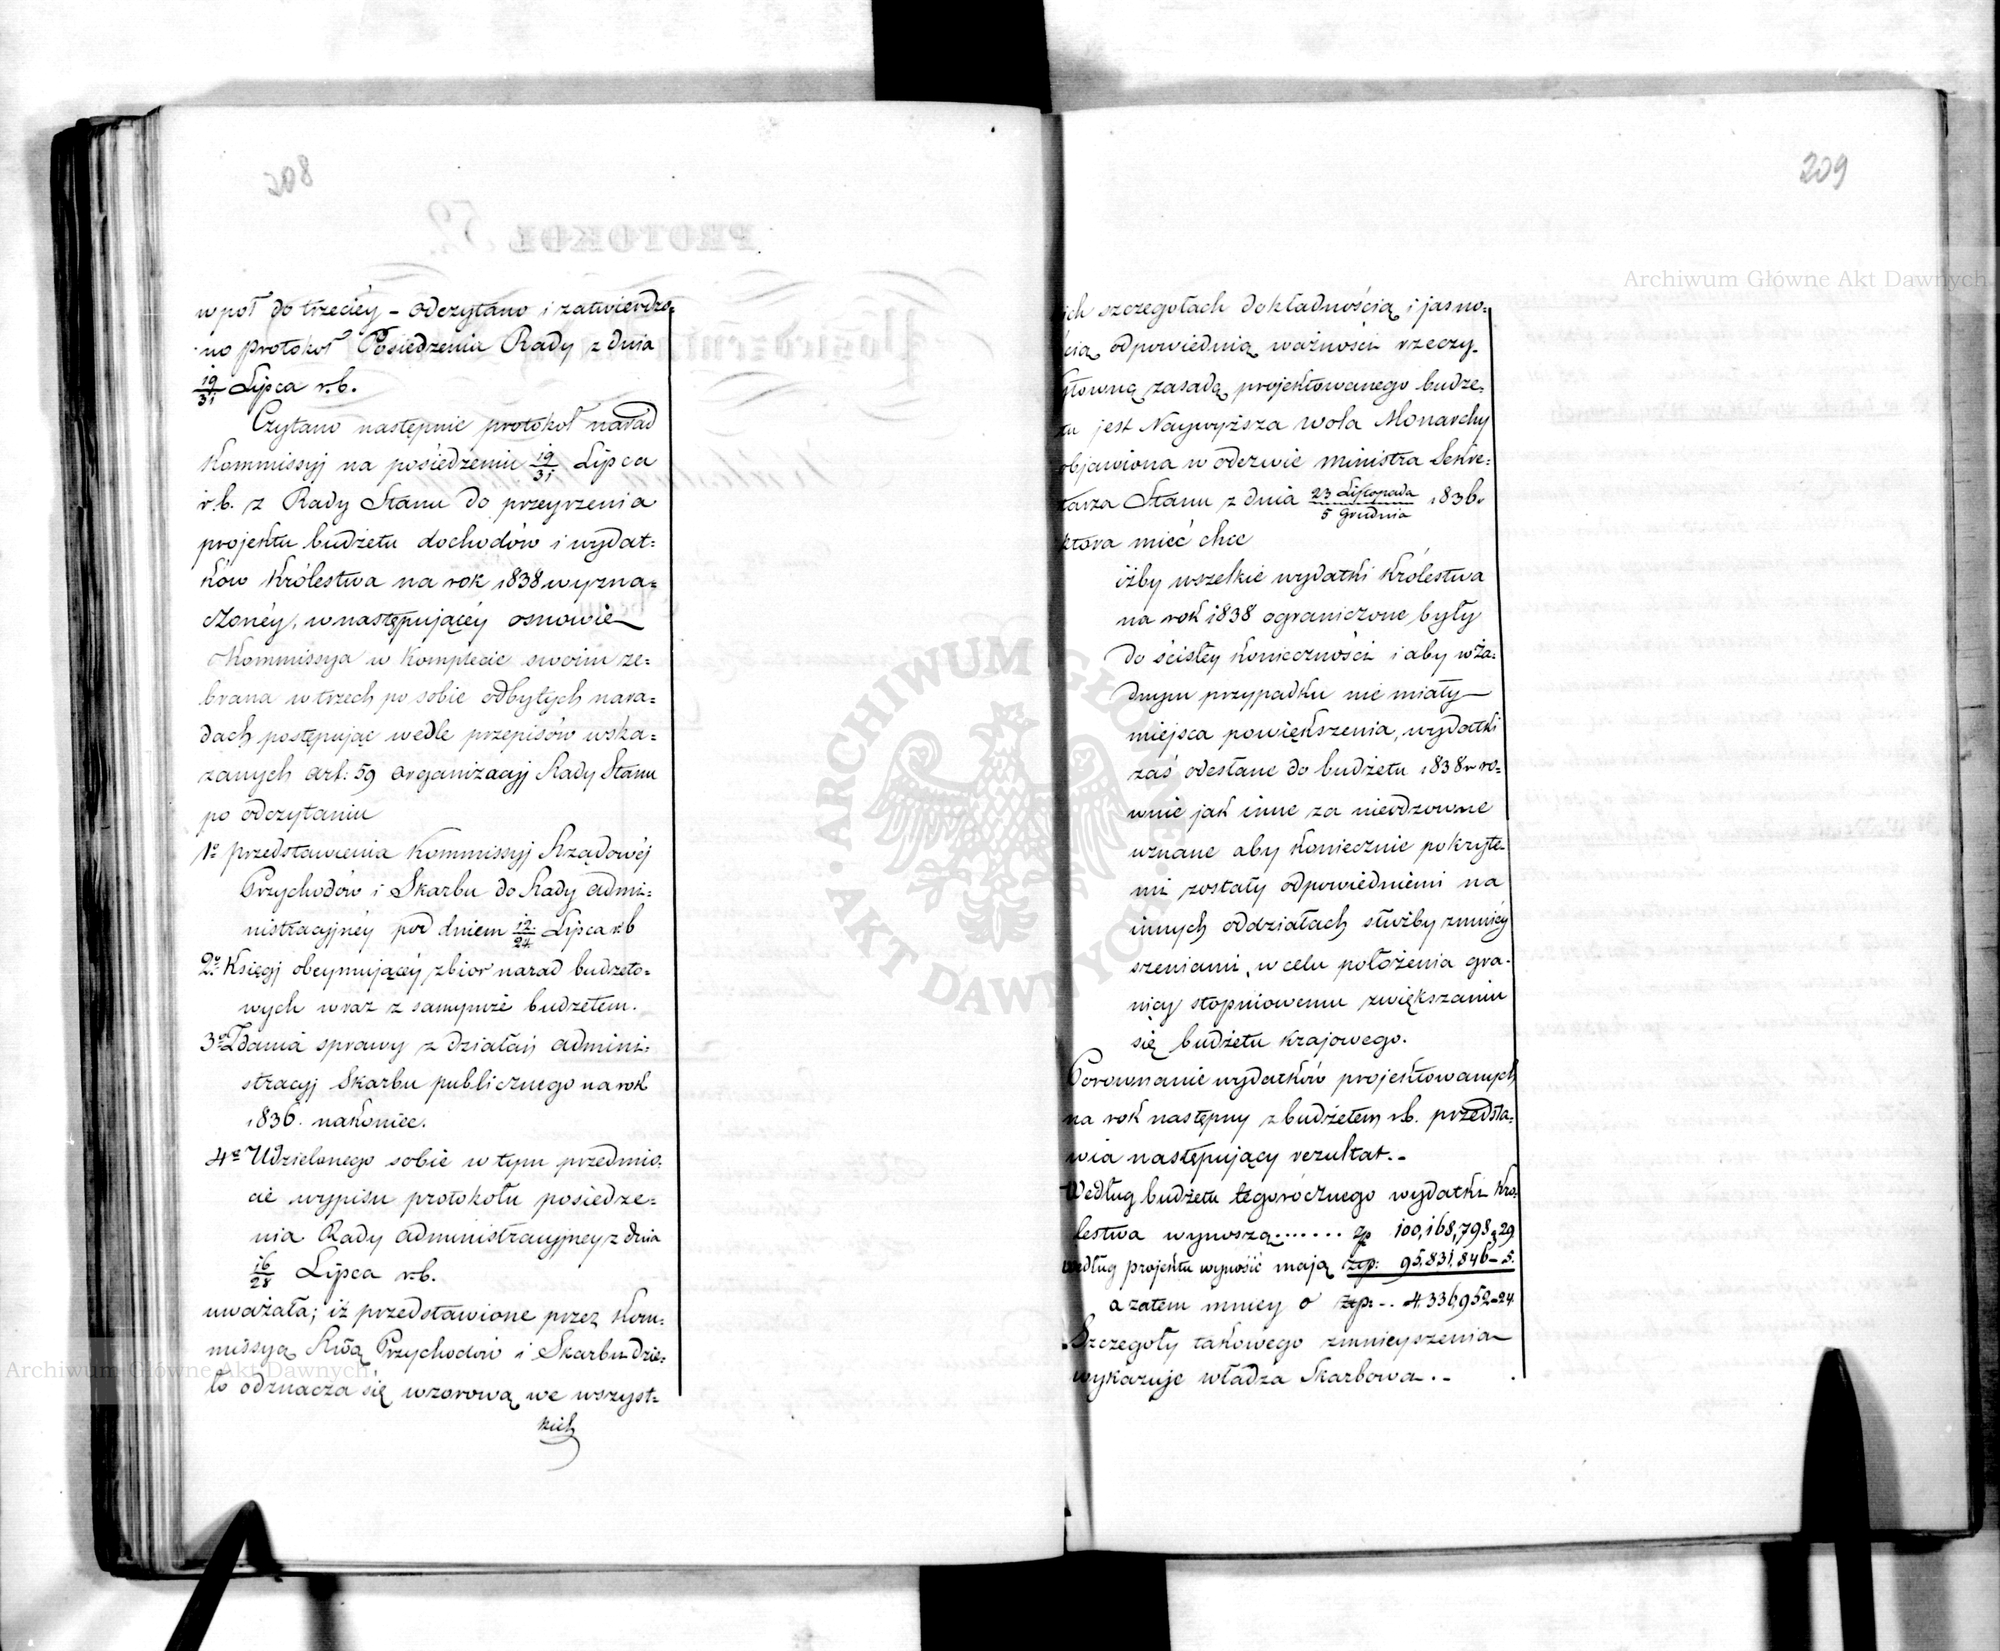 208
wpoł do trzeciéy – odczytano i zatwierdzo-
no protokoł Posiedzenia Rady z dnia
19/31 Lipca r.b.
Czytano następnie protokoł narad
Kommissyj na posiedzeniu 19/31 Lipca
r.b. z Rady Stanu do przeyrzenia
projektu budżetu dochodów i wydat=
ków Królestwa na rok 1838 wyzna=
czonéy, w następującéy osnowie
Kommissya w Komplecie swoim ze=
brana w trzech po sobie odbytych nara=
dach postępując wedle przepisów wska=
zanych art: 59 organizacyj Rady Stanu
po odczytaniu
1º przedstawienia Kommissyj Rządowéj
Przychodów i Skarbu do Rady admi=
nistracyjnéy pod dniem 12/24 Lipca r.b
2º Księgj obeymującéy zbior narad budżeto=
wych wraz z samymże budżetem.
3º Zdania sprawy z działań admini=
stracyj Skarbu publicznego na rok
1836. nakoniec.
4º Udzielonego sobie w tym przedmio=
cie wypisu protokołu posiedze=
nia Rady administracyjney z dnia
16/28 Lipca r.b.
uważała; iż przedstawione przez Kom=
missyą Rżą Przychodów i Skarbu dzie=
ło odznacza się wzorową we wszyst=
kich
209
ich szczegołach dokładnością i jasno=
cią odpowiednią ważności rzeczy.
główną zasadą projektowanego budże=
tu jest Naywyższa wola Monarchy
objawiona w odezwie Ministra Sekre=
tarza Stanu z dnia 23 Listopada/5 Grudnia 1836 r
która mieć chce
iżby wszelkie wydatki Królestwa
na rok 1838 ograniczone były
do ścisłey konieczności i aby w ża=
dnym przypadku nie miały
miejsca powiększenia, wydatki
zaś odesłane do budżetu 1838 r ro=
wnie jak inne za nieodzowne
uznane aby koniecznie pokryte=
mi zostały odpowiedniemi na
innych oddziałach służby zmniéy
szeniami, w celu położenia gra=
nicy stopniowemu zwiększaniu
się budżetu krajowego.
Porownanie wydatków projektowanych
na rok następny z budżetem r.b. przedsta=
wia następujący rezultat.–
Według budżetu tegorócznego wydatki Kró=
lestwa wynoszą....... zp 100,168,798 „ 29
według projektu wynosić mają złp: 95,831,846 – 5.
a zatem mniey o złp: -. 4,336,952 – 24
Szczegoły takowego zmnieyszenia
wykazuje władza Skarbowa.–
Archiwum Główne Akt Dawnych
Archiwum Główne Akt Dawnych
ARCHIWUM GŁÓWNE AKT DAWNYCH